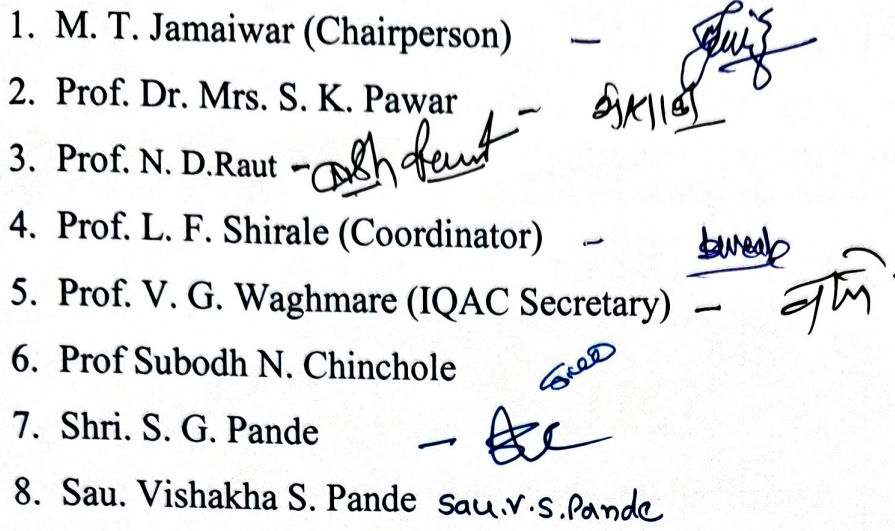 1. M. T. Jamaiwar (Chairperson) –
2. Prof. Dr. Mrs. S. K. Pawar –
3. Prof. N. D.Raut –
4. Prof. L. F. Shirale (Coordinator) –
5. Prof. V. G. Waghmare (IQAC Secretary) –
6. Prof Subodh N. Chinchole
7. Shri. S. G. Pande –
8. Sau. Vishakha S. Pande Sau.V.S.Pande